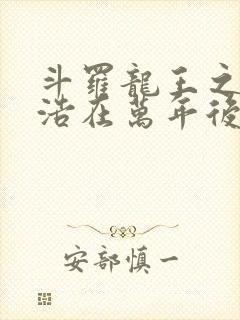 斗羅龍王之
浩在萬年後
安部慎一